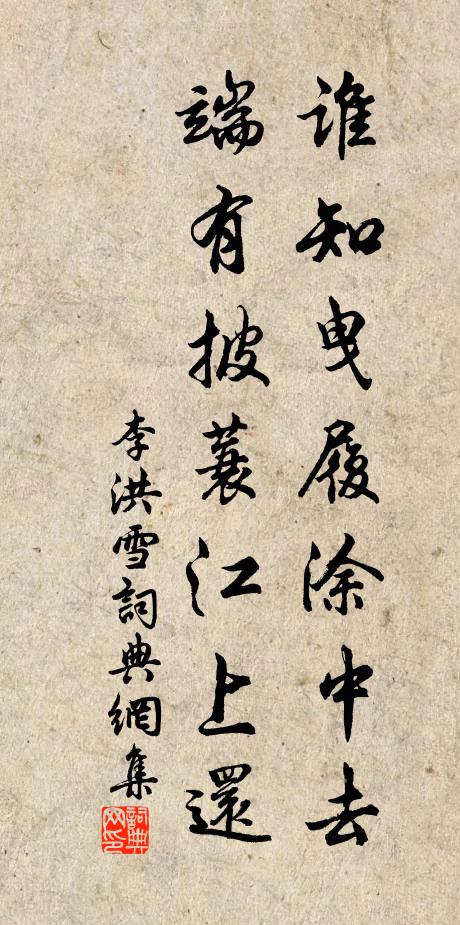 誰知曳履涂中去
端有披蓑江上還
李洪雪詞典網集
詞典網印